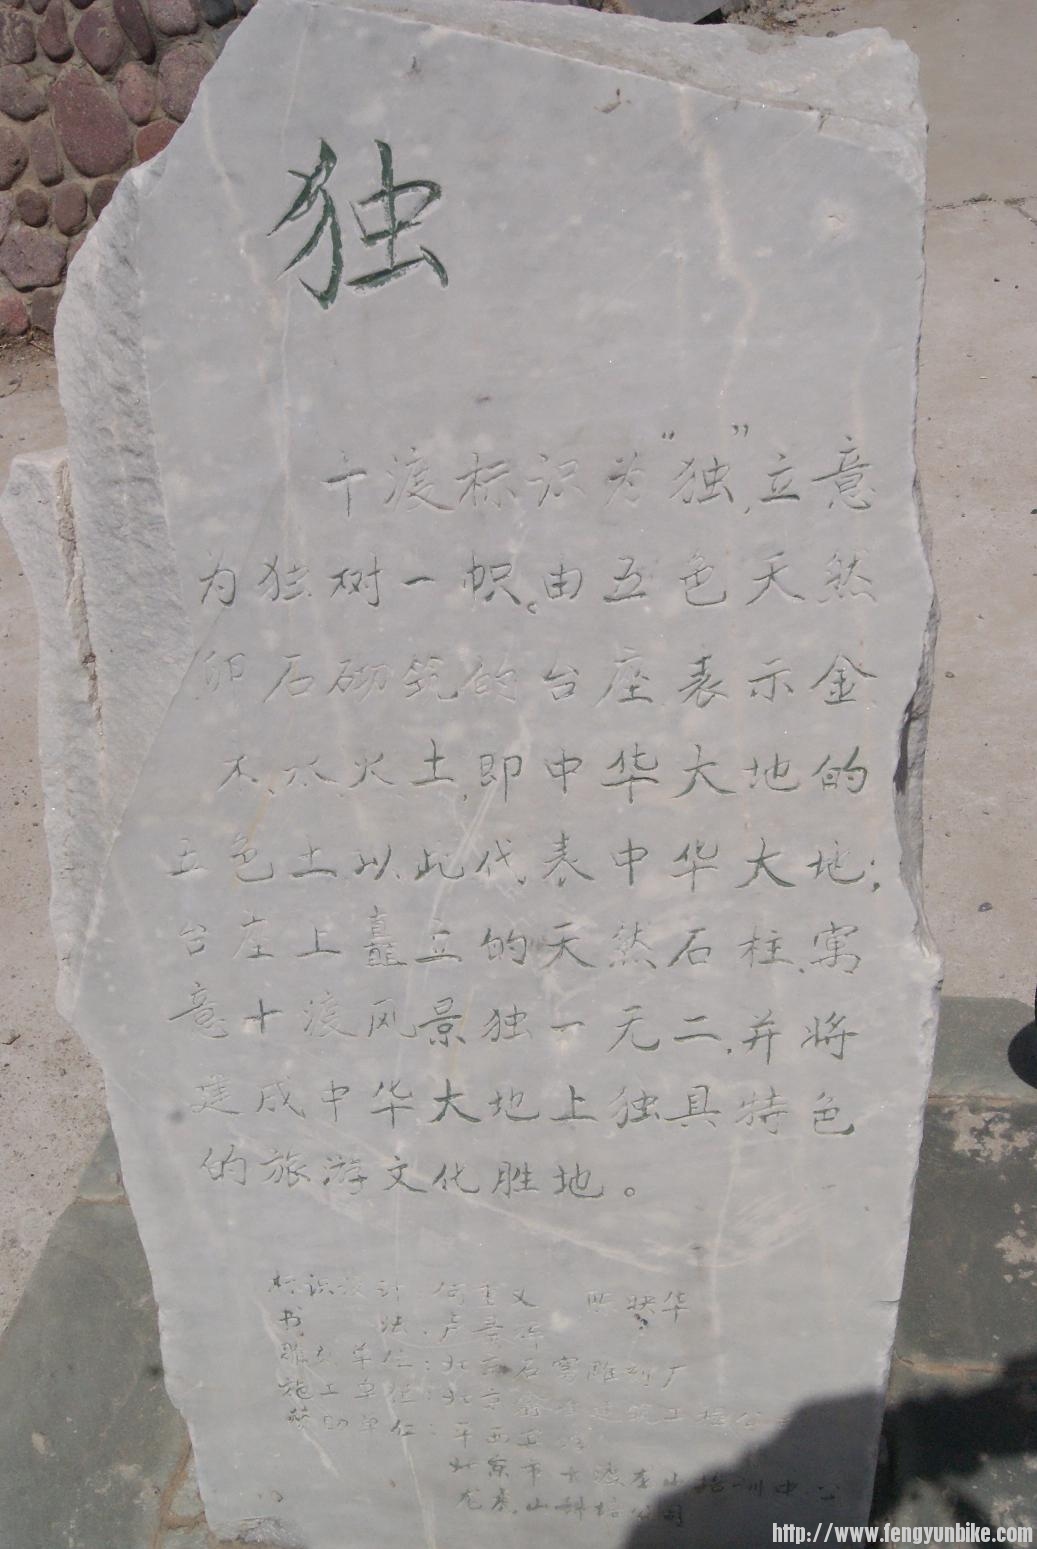 独
十渡标识为“独”，立意
为独树一帜。由五色天然
卵石砌筑的台座，表示金
木、水、火、土，即中华大地的
五色土以此代表中华大地；
台座上矗立的天然石柱，寓
意十渡风景独一无二，并将
建成中华大地上独具特色
的旅游文化胜地。
标识设计：何重义
书法：卢景
雕刻单位：北京石窝雕刻厂
施工单位：北京建筑工程公
赞助单位：平西
北京市十渡龙山培训中
龙泉山
http://www.fengyunbike.com